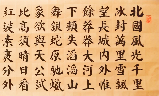 北國風光千里
冰封萬里雪飄
望長城內外惟
餘莽莽大河上
下頓失滔滔山
舞銀蛇原馳蠟
象欲與天公試
比高須晴日看
紅裝素裹分外